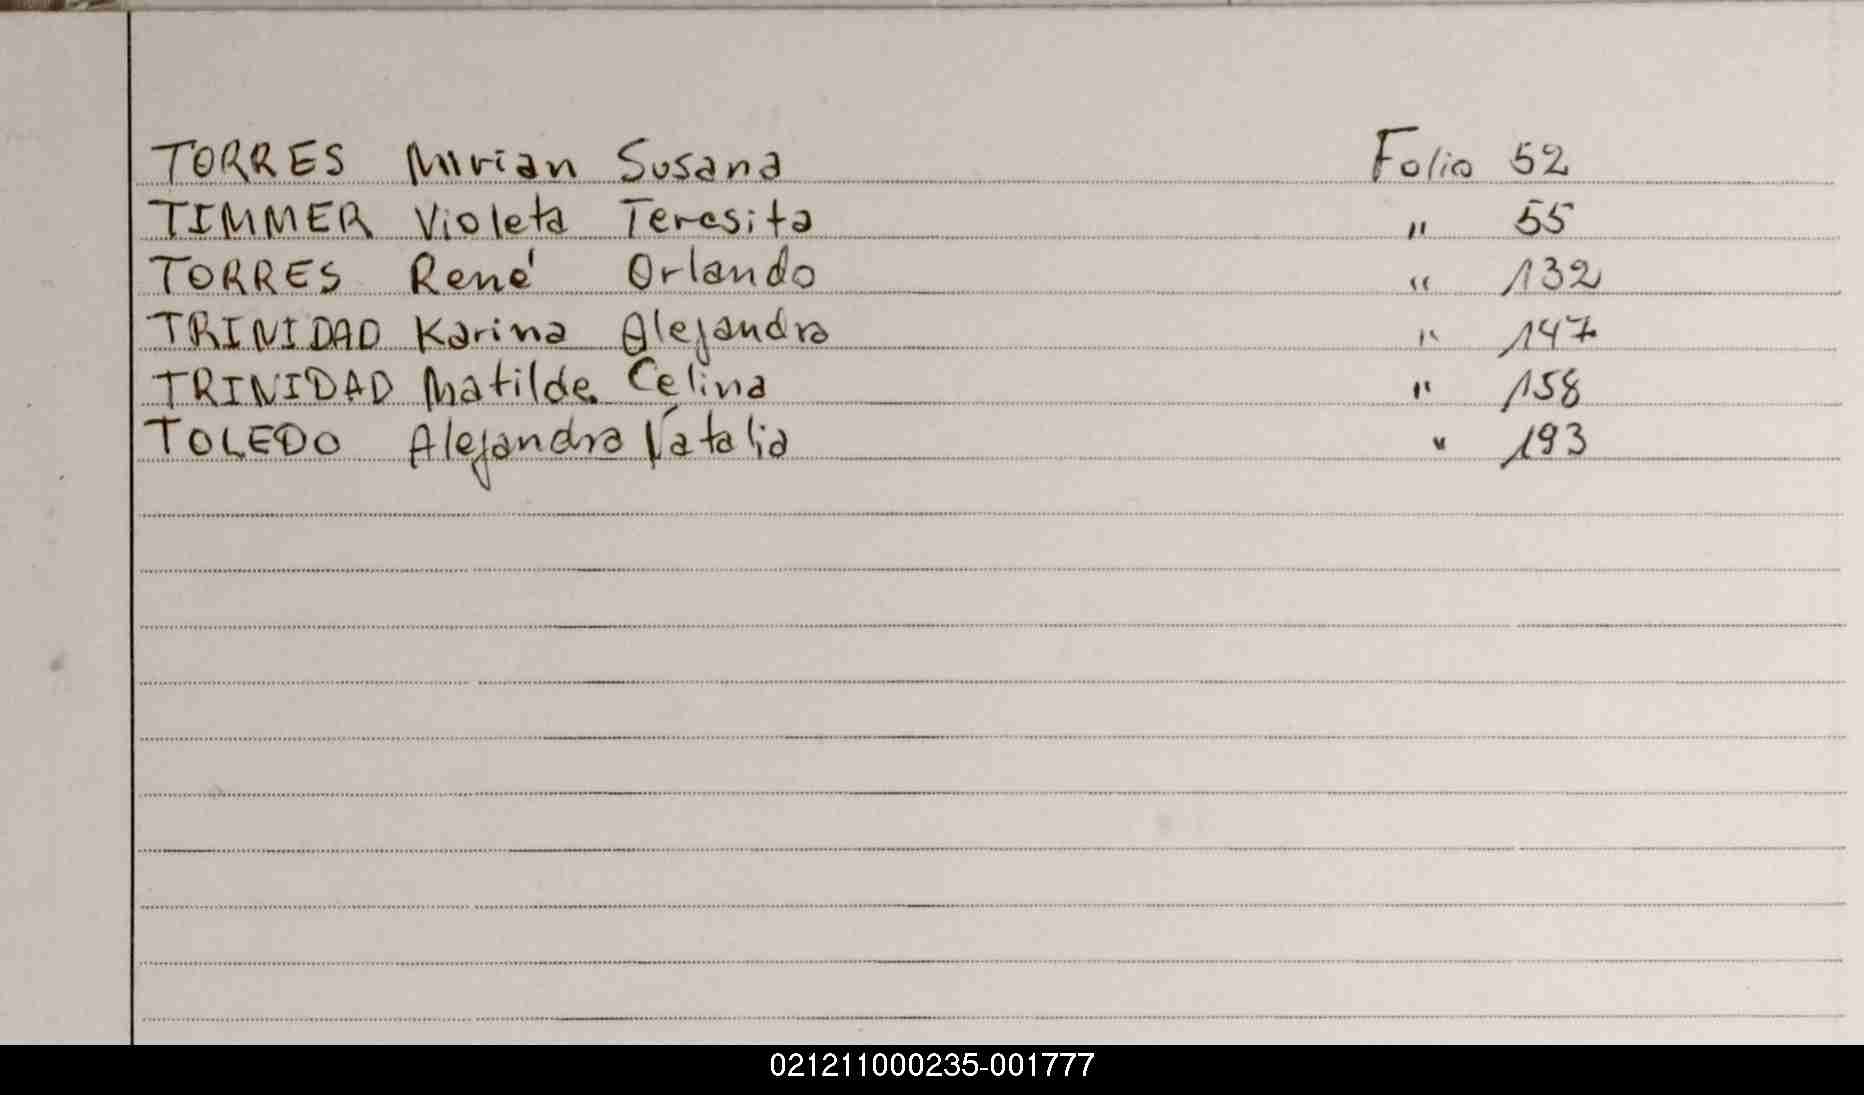 TORRES Mirian Susana Folio 52
TIMMER Violeta Teresita " 55
TORRES René Orlando " 132
TRINIDAD Karina Alejandra " 147
TRINIDAD Matilde Celina " 158
TOLEDO Alejandra Natalia " 193
021211000235-001777